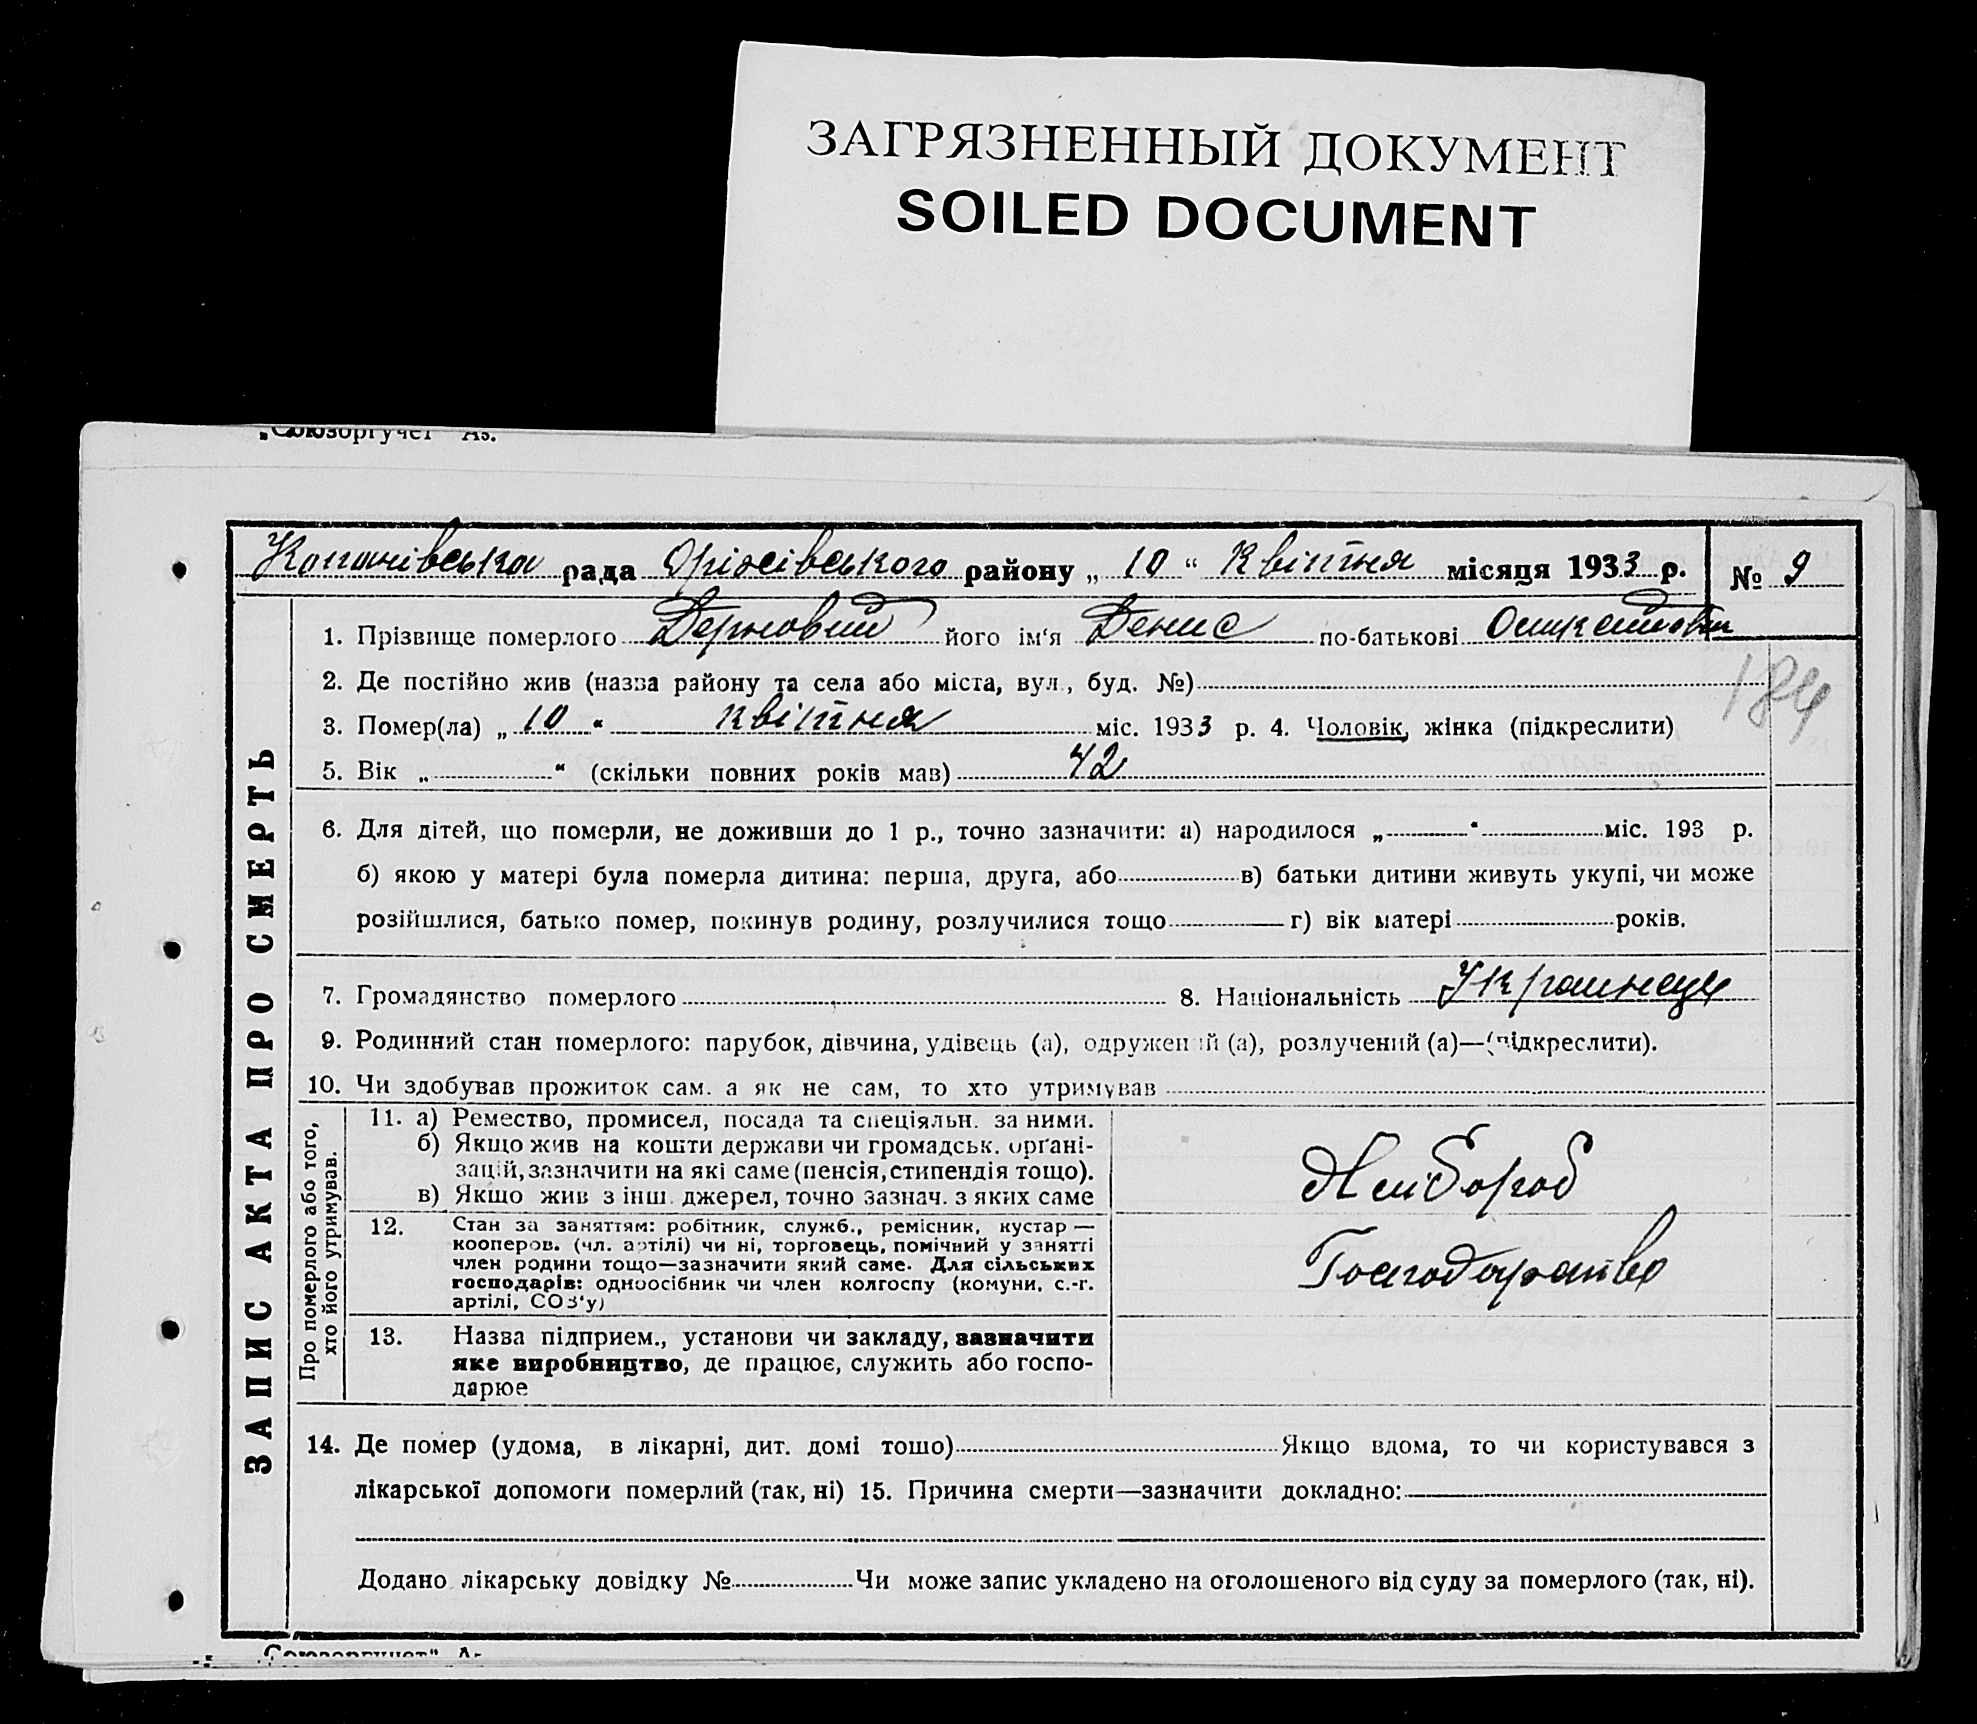 ЗАГРЯЗНЕННЫЙ ДОКУМЕНТ
SOILED DOCUMENT
„Союзоргучет" Аз.
Копанівська рада Оріхівського району „ 10 " Квітня місяця 1933 р. № 9
1. Прізвище померлого Дерновий його ім'я Денис по-батькові
184
2. Де постійно жив (назва району та села або міста, вул., буд. №)
3. Помер(ла) „ 10 " квітня міс. 1933 р. 4. Чоловік, жінка (підкреслити)
5. Вік „ " (скільки повних років мав) 42
6. Для дітей, що померли, не доживши до 1 р., точно зазначити: а) народилося „ " міс. 193 р.
б) якою у матері була померла дитина: перша, друга, або в) батьки дитини живуть укупі, чи може
розійшлися, батько помер, покинув родину, розлучилися тощо г) вік матері років.
7. Громадянство померлого 8. Національність Українець
9. Родинний стан померлого: парубок, дівчина, удівець (а), одружений (а), розлучений (а)—(підкреслити).
10. Чи здобував прожиток сам. а як не сам, то хто утримував
ЗАПИС АКТА ПРО СМЕРТЬ
Про померлого або того,
хто його утримував.
11. а) Ремество, промисел, посада та спеціяльн. за ними.
б) Якщо жив на кошти держави чи громадськ. органі-
зацій, зазначити на які саме (пенсія, стипендія тощо).
в) Якшо жив з інш. джерел, точно зазнач. з яких саме
Хлибороб
12. Стан за заняттям: робітник, служб., ремісник, кустар —
кооперов. (чл. артілі) чи ні, торговець, помічний у занятті
член родини тощо—зазначити який саме. Для сільських
господарів: одноосібник чи член колгоспу (комуни, с.-г.
артілі, СОЗ'у)
Господарство
13. Назва підприєм., установи чи закладу, зазначити
яке виробництво, де працює, служить або госпо-
дарює
14. Де помер (удома, в лікарні, дит. домі тошо) Якщо вдома, то чи користувався з
лікарської допомоги померлий (так, ні) 15. Причина смерти—зазначити докладно:
Додано лікарську довідку № Чи може запис укладено на оголошеного від суду за померлого (так, ні).
„Союзоргучет" Аз.